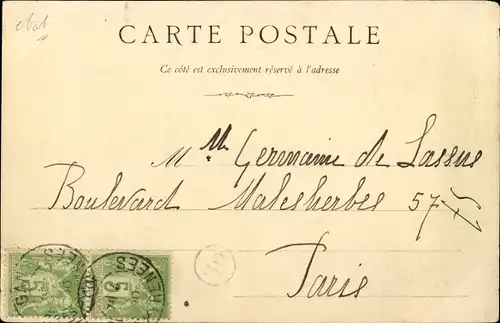 CARTE POSTALE
Ce côté est exclusivement réservé à l'adresse
M Germaine de Lassus
Boulevard Malesherbes 57
Paris
5